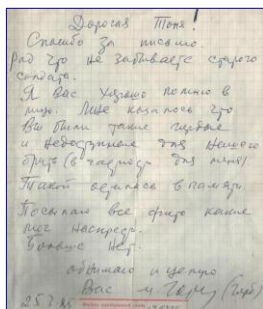 Дорогая Тоня!
Спасибо за письмо.
Рад что не забываете старого
солдата.
Я Вас хорошо помню в
лицо. Мне казалось что
Вы были такие гордые
и недоступные для нашего
брата (в для меня)
Такой остались в памяти
Посылаю все фото какие
мог наскрес.
Больше нет.
обнимаю и целую
Вас М.